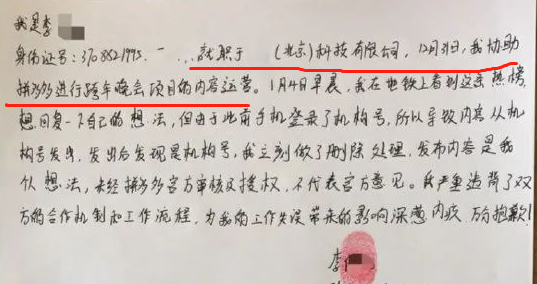 我是李
身份证号：3708821995 就职于 （北京）科技有限公司，12月31日，我协助
拼多多进行跨年晚会项目的内容运营。1月4日早晨，我在地铁上看到这条热榜，
想回复一下自己的想法，但由于此前手机登录了机构号，所以导致内容从机
构号发出，发出后发现是机构号，我立刻做了删除处理，发布内容是我
个人想法，未经拼多多官方审核及授权，不代表官方意见。我严重违背了双
方的合作机制和工作流程，为我的工作失误带来的影响深感内疚，万分抱歉！
李